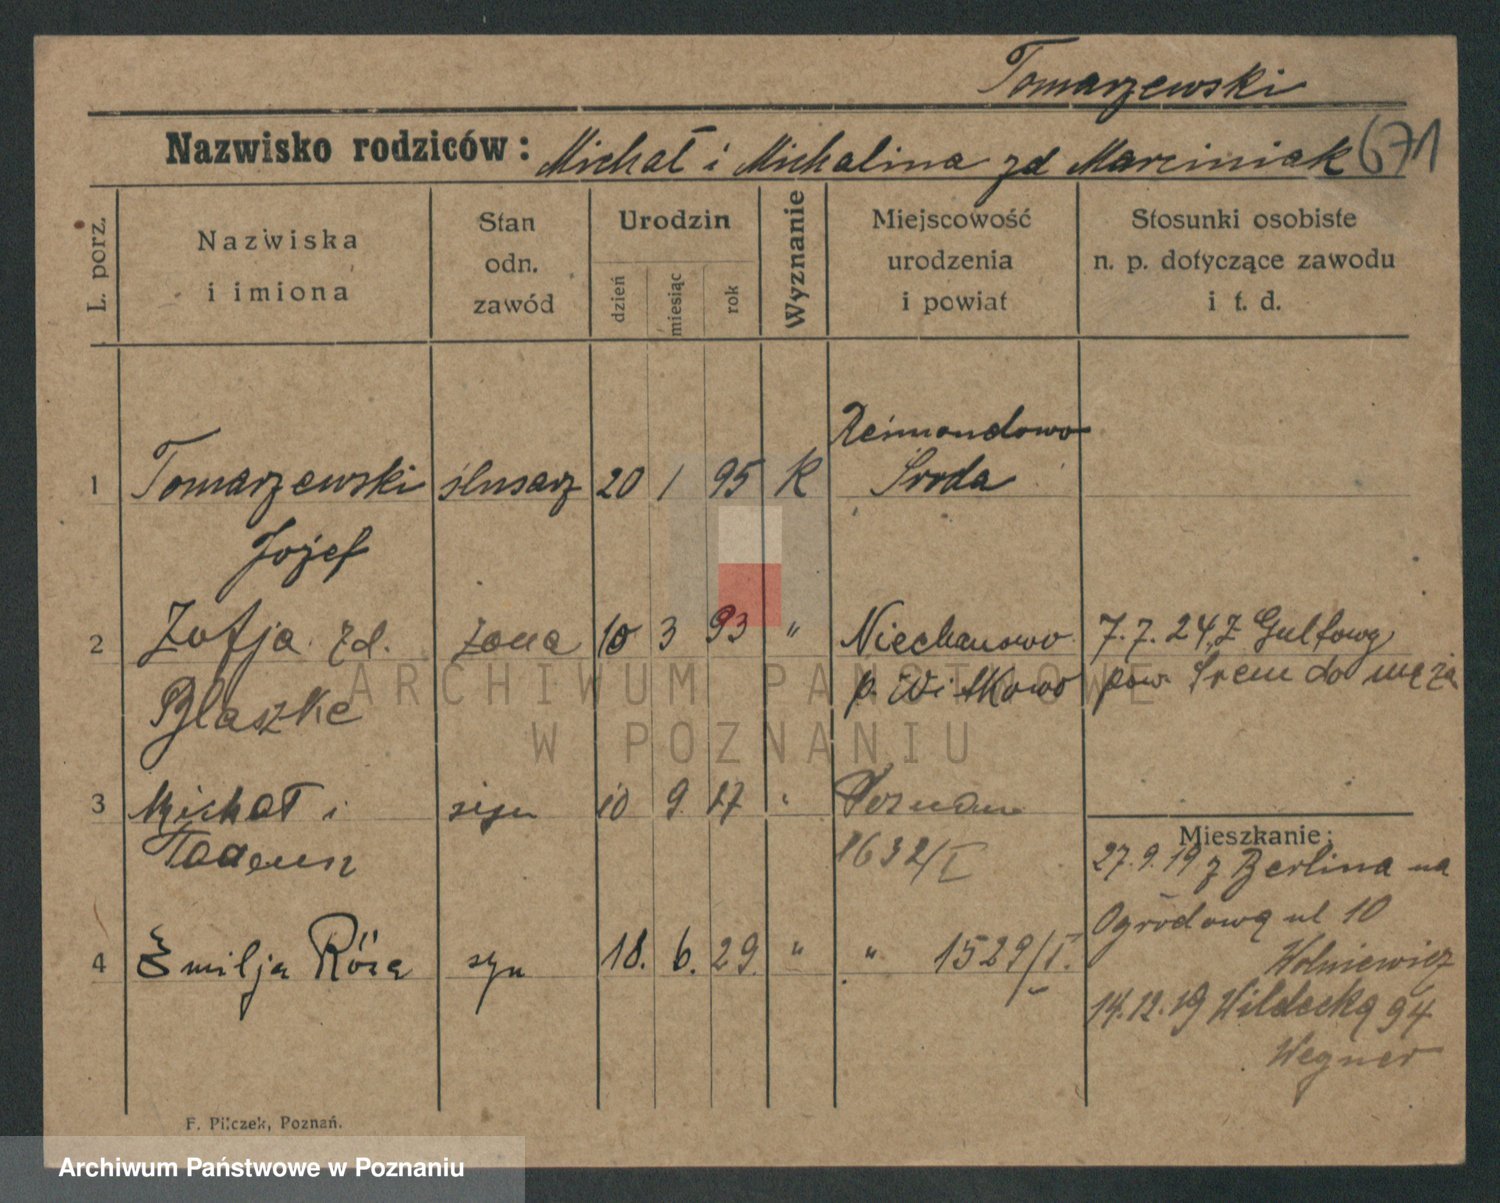 Tomarzewski
Nazwisko rodziców: Michał i Michalina zd Marciniak 671
L. porz.
Nazwiska i imiona
Stan odn. zawód
Urodzin
dzień
miesiąc
rok
Wyznanie
Miejscowość urodzenia i powiat
Stosunki osobiste n. p. dotyczące zawodu i t. d.
Reimondowo
1 Tomarzewski ślusarz 20 1 95 K Środa
Jozef
2 Zofja zd. żona 10 3 93 " Niechanowo 7.7.24 z Gultowy
Błaszke p. Witkowo pow. Śrem do męża
3 Michał i syn 10 9 17 " Poznań
Tadeusz 1632/I
Mieszkanie:
27.9.19 z Berlina na
Ogrodową ul 10
4 Emilja Róża syn 18. 6. 29. " " 1529/I.
Wolniewicz
14.12.19 Wildecką 94
Wegner
F. Pilczek, Poznań.
ARCHIWUM PAŃSTWOWE
W POZNANIU
Archiwum Państwowe w Poznaniu